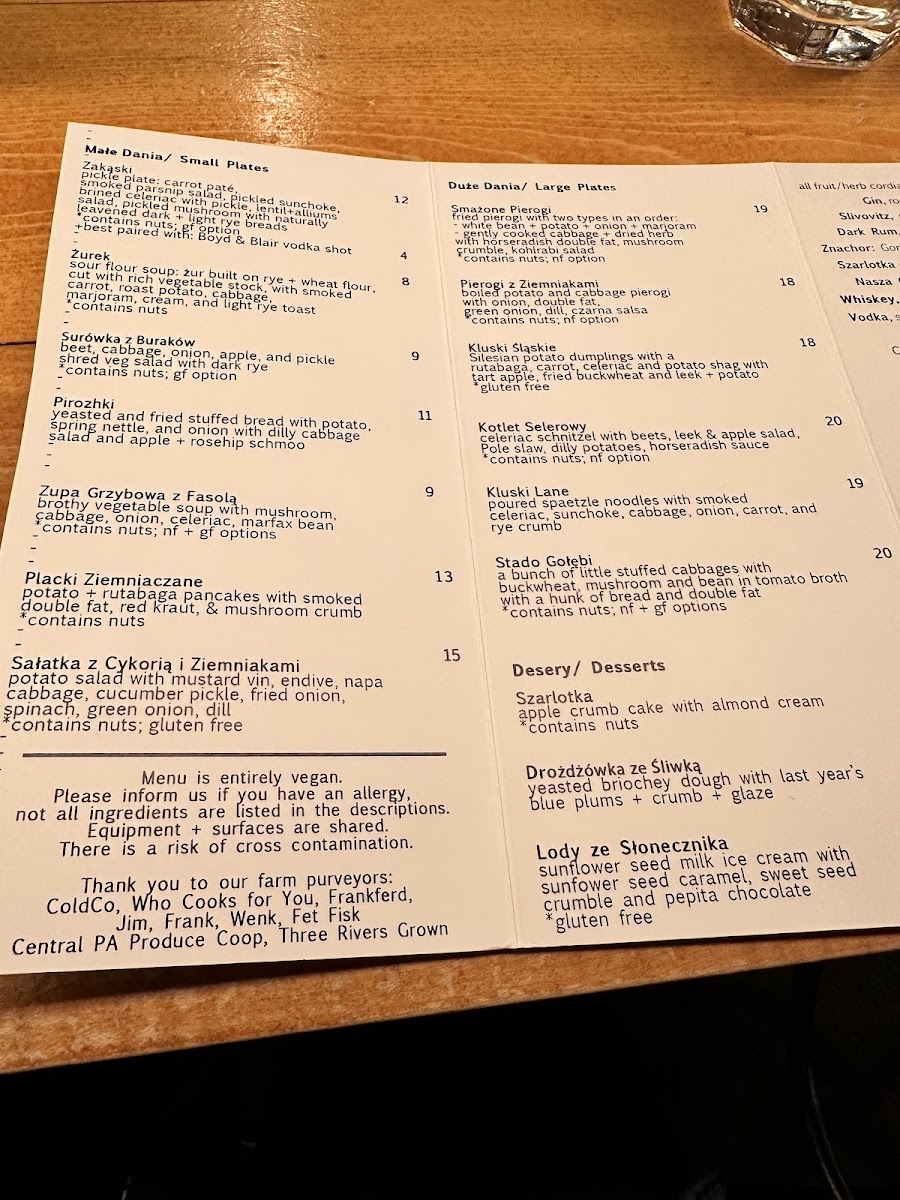 Małe Dania/ Small Plates
Zakąski
pickle plate: carrot paté,
smoked parsnip salad, pickled sunchoke,
brined celeriac with pickle, lentil+alliums
salad, pickled mushroom with naturally
leavened dark + light rye breads
*contains nuts; gf option
12
+best paired with: Boyd & Blair vodka shot
4
Żurek
8
sour flour soup: żur built on rye + wheat flour,
cut with rich vegetable stock, with smoked
carrot, roast potato, cabbage,
marjoram, cream, and light rye toast
*contains nuts
Surówka z Buraków
9
beet, cabbage, onion, apple, and pickle
shred veg salad with dark rye
*contains nuts; gf option
Pirozhki
11
yeasted and fried stuffed bread with potato,
spring nettle, and onion with dilly cabbage
salad and apple + rosehip schmoo
Zupa Grzybowa z Fasolą
9
brothy vegetable soup with mushroom,
cabbage, onion, celeriac, marfax bean
*contains nuts; nf + gf options
Placki Ziemniaczane
13
potato + rutabaga pancakes with smoked
double fat, red kraut, & mushroom crumb
*contains nuts
Sałatka z Cykorią i Ziemniakami
15
potato salad with mustard vin, endive, napa
cabbage, cucumber pickle, fried onion,
spinach, green onion, dill
*contains nuts; gluten free
Menu is entirely vegan.
Please inform us if you have an allergy,
not all ingredients are listed in the descriptions.
Equipment + surfaces are shared.
There is a risk of cross contamination.
Thank you to our farm purveyors:
ColdCo, Who Cooks for You, Frankferd,
Jim, Frank, Wenk, Fet Fisk
Central PA Produce Coop, Three Rivers Grown
Duże Dania/ Large Plates
Smażone Pierogi
19
fried pierogi with two types in an order:
- white bean + potato + onion + marjoram
- gently cooked cabbage + dried herb
with horseradish double fat, mushroom
crumble, kohlrabi salad
*contains nuts; nf option
Pierogi z Ziemniakami
18
boiled potato and cabbage pierogi
with onion, double fat,
green onion, dill, czarna salsa
*contains nuts; nf option
Kluski Śląskie
18
Silesian potato dumplings with a
rutabaga, carrot, celeriac and potato shag with
tart apple, fried buckwheat and leek + potato
*gluten free
Kotlet Selerowy
20
celeriac schnitzel with beets, leek & apple salad,
Pole slaw, dilly potatoes, horseradish sauce
*contains nuts; nf option
Kluski Lane
19
poured spaetzle noodles with smoked
celeriac, sunchoke, cabbage, onion, carrot, and
rye crumb
Stado Gołębi
20
a bunch of little stuffed cabbages with
buckwheat, mushroom and bean in tomato broth
with a hunk of bread and double fat
*contains nuts; nf + gf options
Desery/ Desserts
Szarlotka
apple crumb cake with almond cream
*contains nuts
Drożdżówka ze Śliwką
yeasted briochey dough with last year's
blue plums + crumb + glaze
Lody ze Słonecznika
sunflower seed milk ice cream with
sunfower seed caramel, sweet seed
crumble and pepita chocolate
*gluten free
all fruit/herb cordia
Gin, ro
Slivovitz,
Dark Rum,
Znachor: Gor
Szarlotka
Nasza
Whiskey,
Vodka, s